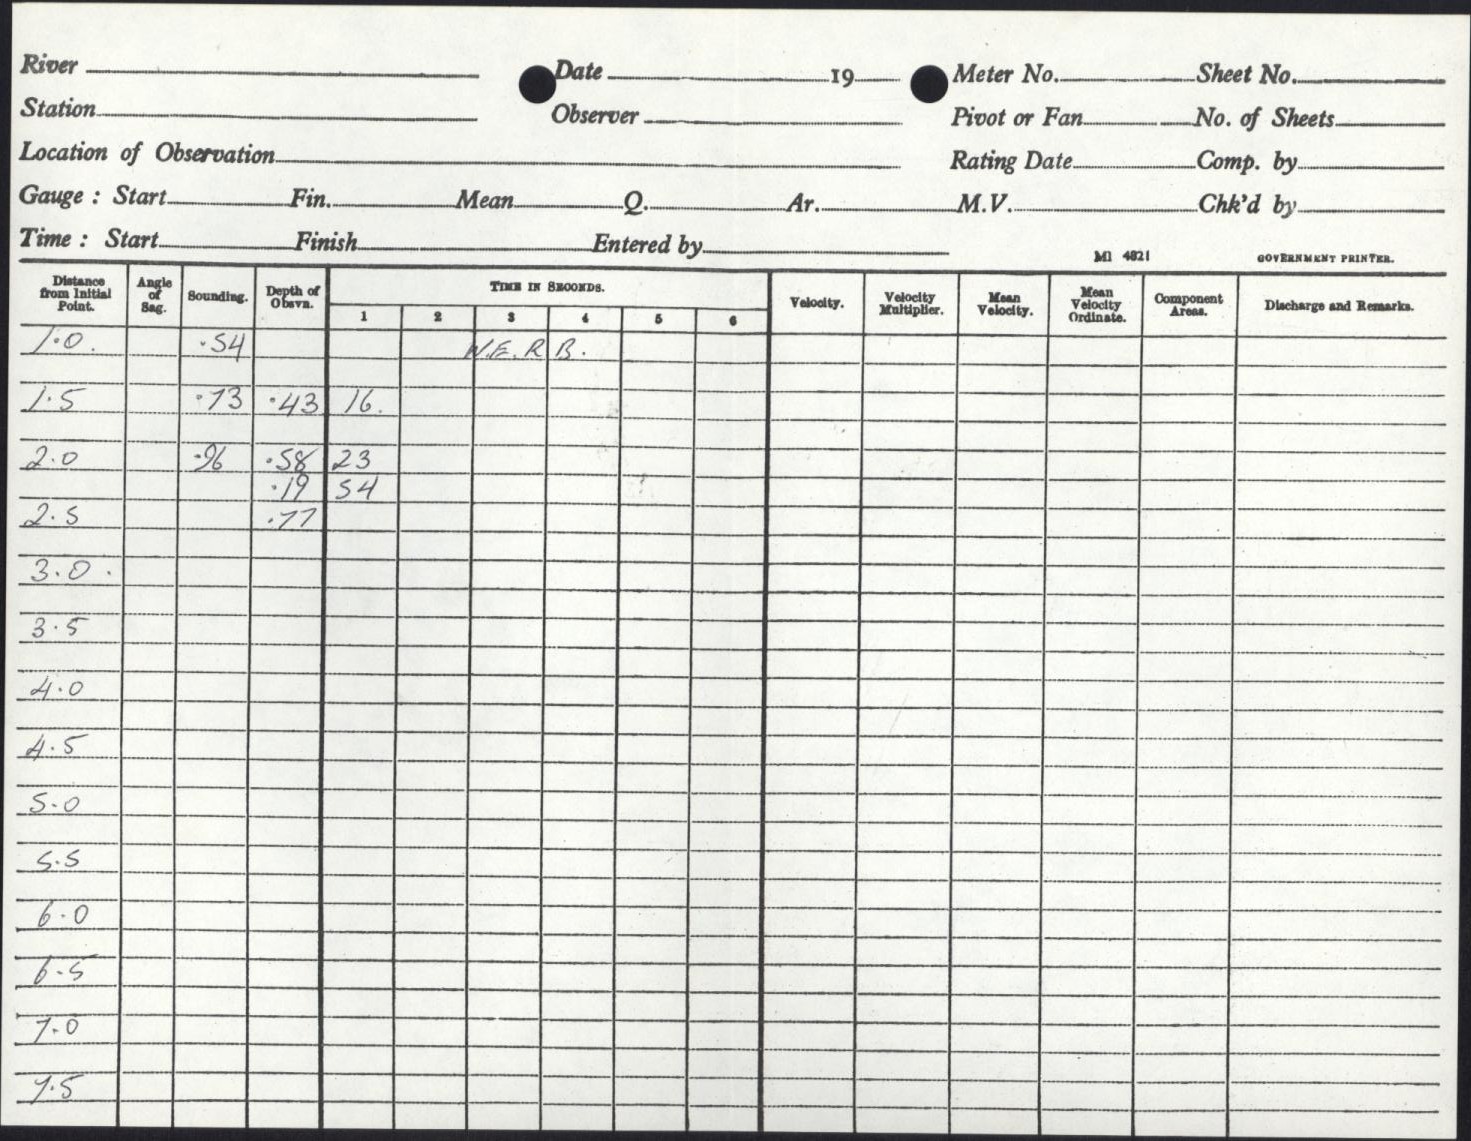 River Date 19 Meter No. Sheet No.
Station Observer Pivot or Fan No. of Sheets
Location of Observation Rating Date Comp. by
Gauge : Start Fin. Mean Q. Ar. M.V. Chk'd by
Time : Start Finish Entered by
MI 4821 GOVERNMENT PRINTER.
Distance from Initial Point. Angle of Sag. Sounding. Depth of Obsvn. TIME IN SECONDS. Velocity. Velocity Multiplier. Mean Velocity. Mean Velocity Ordinate. Component Areas. Discharge and Remarks.
1 2 3 4 5 6
1.0. .54 W.E.R.B.
1.5 .73 .43 16.
2.0 .96 .58 23
.19 54
2.5 .77
3.0.
3.5
4.0
4.5
5.0
5.5
6.0
6.5
7.0
7.5